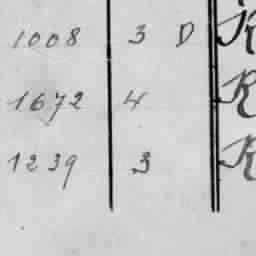 1008 3 D R
1672 4 R
1239 3 R